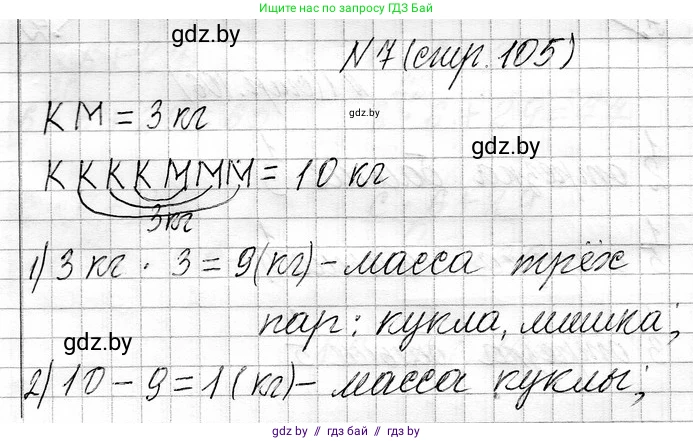 Ищите нас в поиске по запросу ГДЗ Бай
gdz.by
N 7 (стр. 105)
К М = 3 кг
gdz.by
gdz.by
К К К К М М М = 10 кг
3кг
1) 3 кг · 3 = 9(кг) - масса трёх
пар: кукла, мишка;
gdz.by
2) 10 - 9 = 1 (кг) - масса куклы;
gdz.by // гдз бай // гдз by